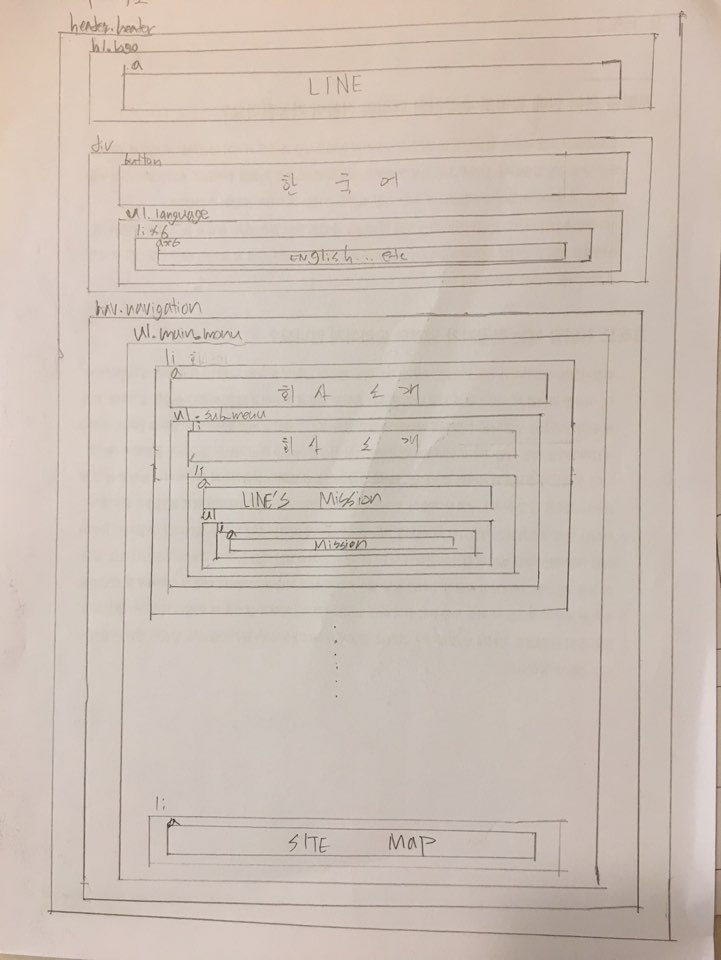 header.header
h1.logo
a
LINE
div
button
한 국 어
ul.language
li ×6
a×6
ENglish... etc
nav.navigation
ul.main_menu
li
a
회 사 소 개
ul.sub_menu
li
회 사 소 개
li
a
LINE'S Mission
ul
li
a
Mission
li
a
SITE Map